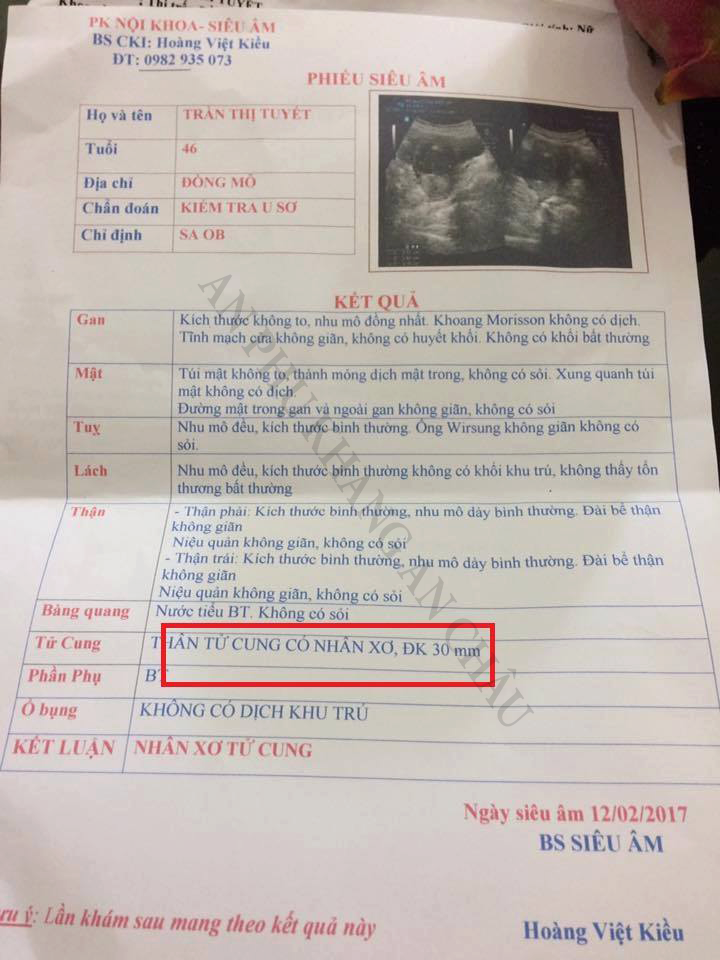 TUYẾT
Nữ
PK NỘI KHOA- SIÊU ÂM
BS CKI: Hoàng Việt Kiều
ĐT: 0982 935 073
PHIẾU SIÊU ÂM
Họ và tên TRẦN THỊ TUYẾT
Tuổi 46
Địa chỉ ĐỒNG MỎ
Chẩn đoán KIỂM TRA U SƠ
Chỉ định SA OB
KẾT QUẢ
Gan Kích thước không to, nhu mô đồng nhất. Khoang Morisson không có dịch.
Tĩnh mạch cửa không giãn, không có huyết khối. Không có khối bất thường
Mật Túi mật không to, thành mỏng dịch mật trong, không có sỏi. Xung quanh túi
mật không có dịch.
Đường mật trong gan và ngoài gan không giãn, không có sỏi
Tuỵ Nhu mô đều, kích thước bình thường. Ống Wirsung không giãn không có
sỏi.
Lách Nhu mô đều, kích thước bình thường không có khối khu trú, không thấy tổn
thương bất thường
Thận - Thận phải: Kích thước bình thường, nhu mô dày bình thường. Đài bể thận
không giãn
Niệu quản không giãn, không có sỏi
- Thận trái: Kích thước bình thường, nhu mô dày bình thường. Đài bể thận
không giãn
Niệu quản không giãn, không có sỏi
Bàng quang Nước tiểu BT. Không có sỏi
Tử Cung THÂN TỬ CUNG CÓ NHÂN XƠ, ĐK 30 mm
Phần Phụ BT
Ổ bụng KHÔNG CÓ DỊCH KHU TRÚ
KẾT LUẬN NHÂN XƠ TỬ CUNG
AN PHỤ KHANG AN CHÂU
Ngày siêu âm 12/02/2017
BS SIÊU ÂM
ưu ý: Lần khám sau mang theo kết quả này
Hoàng Việt Kiều